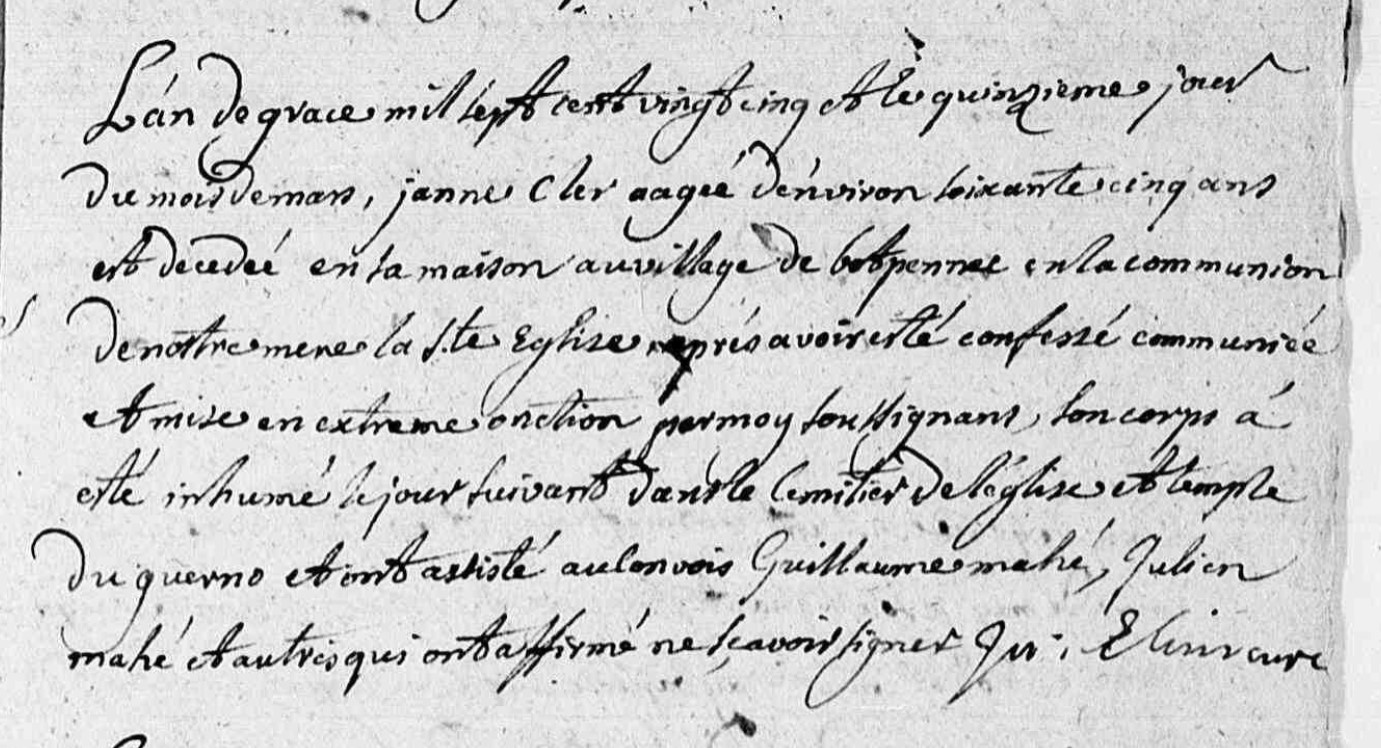 L'an de grace mil sept cent vingt cinq et le quinzieme jour
du mois de mars, janne Cler aageé d'environ soixante cinq ans
est decedeé en sa maison au village de botpennec en la communion
de nostre mere la S.te Eglise aprés avoir esté confessé communiéé
et mise en extreme onction par moy soussignant, son corps á
esté inhumé le jour suivant dans le Cemitier de l'église et temple
du guerno et ont assisté au convois Guillaume mahé, Julien
mahé et autres qui ont affirmé ne sçavoir signer